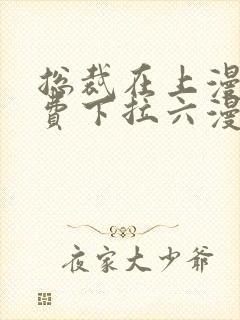 总裁在上漫
费下拉六漫
夜家大少爷